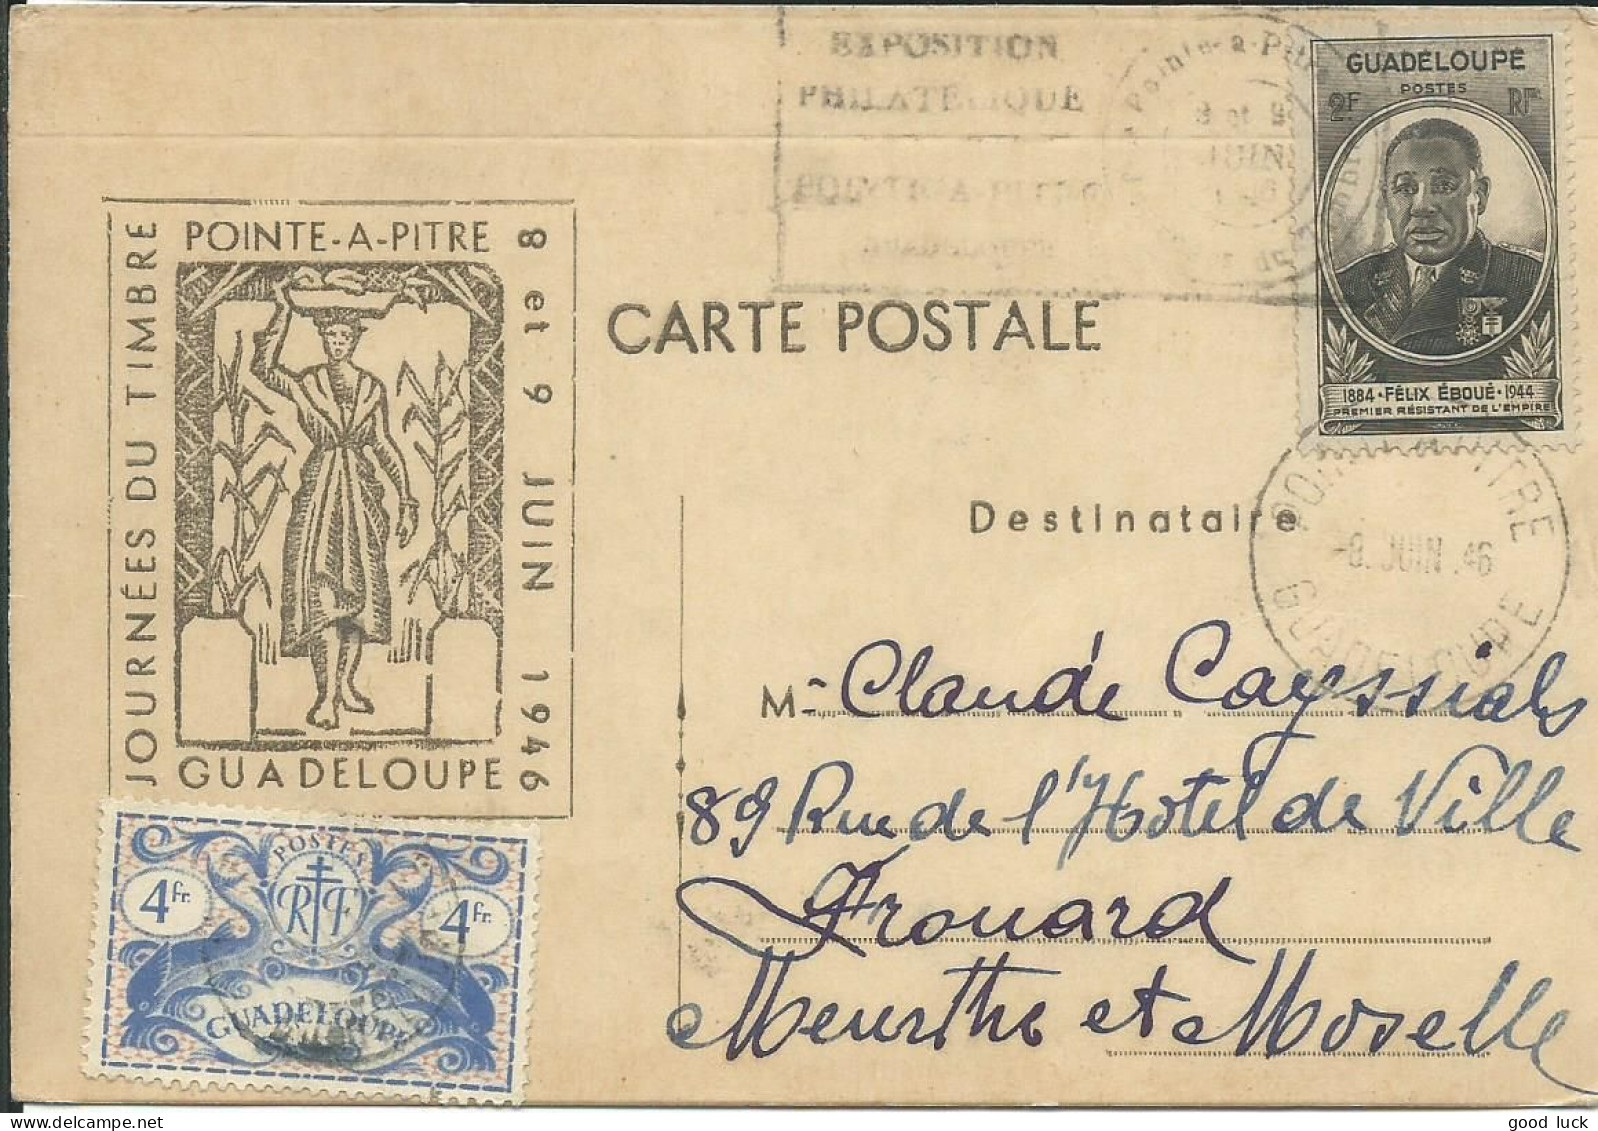 EXPOSITION
PHILATELIQUE
POINTE-A-PITRE
Pointe-a-Pitre
8 et 9
JUIN
GUADELOUPE
POSTES
2F RF
1884 · FÉLIX ÉBOUÉ · 1944
PREMIER RÉSISTANT DE L'EMPIRE
JOURNÉES DU TIMBRE
POINTE-A-PITRE
8 et 9 JUIN 1946
GUADELOUPE
CARTE POSTALE
Destinataire
POINTE A PITRE
-8. JUIN .46
GUADELOUPE
M- Claude Cayssials
89 Rue de l'Hotel de Ville
Frouard
Meurthe et Moselle
POSTES
4 fr. RF 4 fr.
GUADELOUPE
good luck